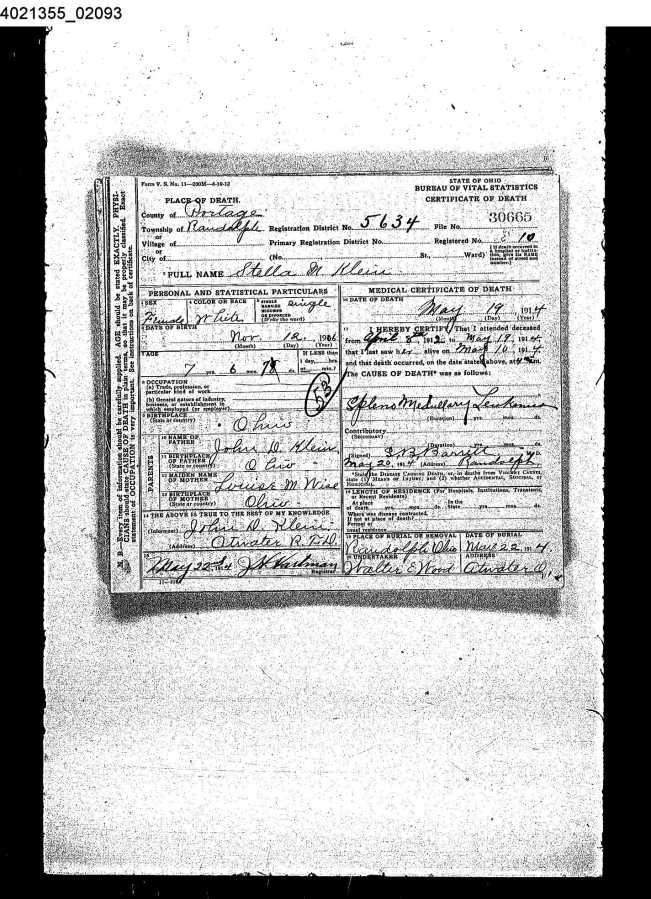 4021355_02093
Form V. S. No. 11—200M—4-10-12
STATE OF OHIO
BUREAU OF VITAL STATISTICS
CERTIFICATE OF DEATH
PLACE OF DEATH.
County of Portage
Township of Randolph Registration District No. 5634 File No. 30665
or
Village of Primary Registration District No. Registered No. 10
or
City of (No. St., Ward)
[If death occurred in a hospital or institution, give its NAME instead of street and number.]
FULL NAME Stella M. Klein
PERSONAL AND STATISTICAL PARTICULARS
3 SEX Female
4 COLOR OR RACE White
5 SINGLE MARRIED WIDOWED OR DIVORCED (Write the word) Single
6 DATE OF BIRTH
Nov. 12, 1906
(Month) (Day) (Year)
7 AGE
7 yrs. 6 mos. ds.
If LESS than
1 day, hrs.
or min.?
8 OCCUPATION
(a) Trade, profession, or
particular kind of work
(b) General nature of industry,
business, or establishment in
which employed (or employer)
53
9 BIRTHPLACE
(State or country) Ohio
PARENTS
10 NAME OF
FATHER John D. Klein
11 BIRTHPLACE
OF FATHER
(State or country) Ohio
12 MAIDEN NAME
OF MOTHER Louise M Wise
13 BIRTHPLACE
OF MOTHER
(State or country) Ohio
14 THE ABOVE IS TRUE TO THE BEST OF MY KNOWLEDGE
(Informant) John D. Klein
(Address) Atwater R.F.D.
15
May 22 14 J H Hartman
Registrar
MEDICAL CERTIFICATE OF DEATH
16 DATE OF DEATH
May 19, 1914
(Month) (Day) (Year)
17 I HEREBY CERTIFY, That I attended deceased
from April 191 to May 19, 1914
that I last saw her alive on May 10, 1914
and that death occurred, on the date stated above, at m.
The CAUSE OF DEATH* was as follows:
Spleno Medullary Leukemia
(Duration) yrs. mos. ds.
Contributory
(Secondary)
(Duration) yrs. mos. ds.
(Signed) Barrett M.D.
May 20, 1914 (Address) Randolph
*State the DISEASE CAUSING DEATH, or, in deaths from VIOLENT CAUSES, state (1) MEANS OF INJURY; and (2) whether ACCIDENTAL, SUICIDAL, or HOMICIDAL.
18 LENGTH OF RESIDENCE (For Hospitals, Institutions, Transients,
or Recent Residents)
At place In the
of death yrs. mos. ds. State yrs. mos. ds.
Where was disease contracted,
If not at place of death?
Former or
usual residence
19 PLACE OF BURIAL OR REMOVAL
Randolph Ohio
DATE OF BURIAL
May 22, 1914
20 UNDERTAKER
Walter E Wood
ADDRESS
Atwater O.
N. B.—Every item of information should be carefully supplied. AGE should be stated EXACTLY. PHYSICIANS should state CAUSE OF DEATH in plain terms, so that it may be properly classified. Exact statement of OCCUPATION is very important. See instructions on back of certificate.